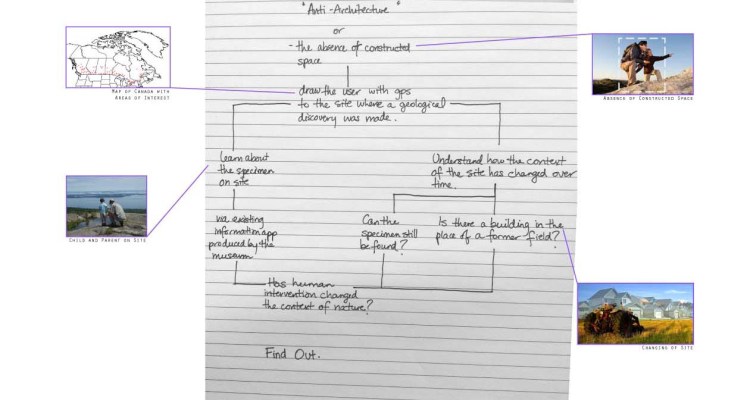 "Anti-Architecture"
or
- the absence of constructed
space
draw the user with gps
to the site where a geological
discovery was made.
MAP OF CANADA WITH
AREAS OF INTEREST
ABSENCE OF CONSTRUCTED SPACE
Learn about
the specimen
on site
Understand how the context
of the site has changed over
time.
CHILD AND PARENT ON SITE
via existing
information app
produced by the
museum
Can the
specimen still
be found?
Is there a building in the
place of a former field?
Has human
intervention changed
the context of nature?
CHANGING OF SITE
Find Out.